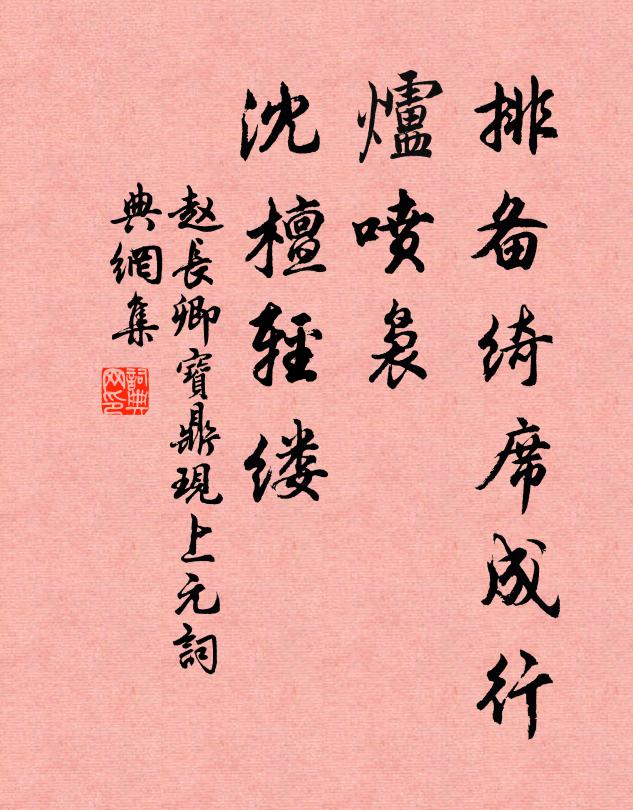 排备绮席成行
爐喷裊
沈檀輕缕
赵長卿寶鼎現上元詞
典網集
詞典網印